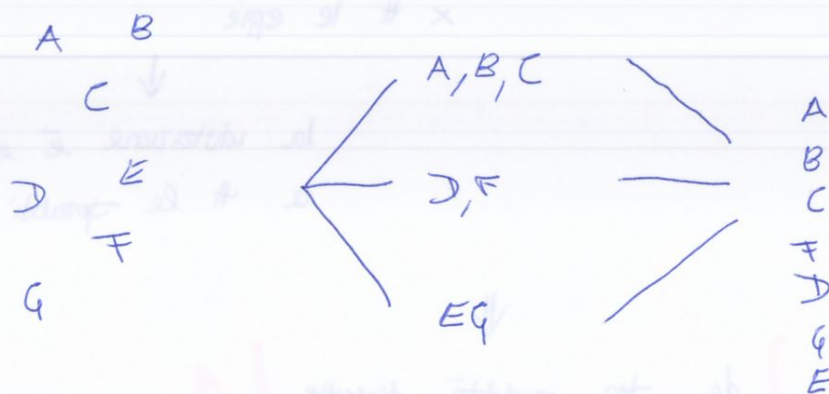 A B
C
D E
F
G
A, B, C
D, F
EG
A
B
C
F
D
G
E